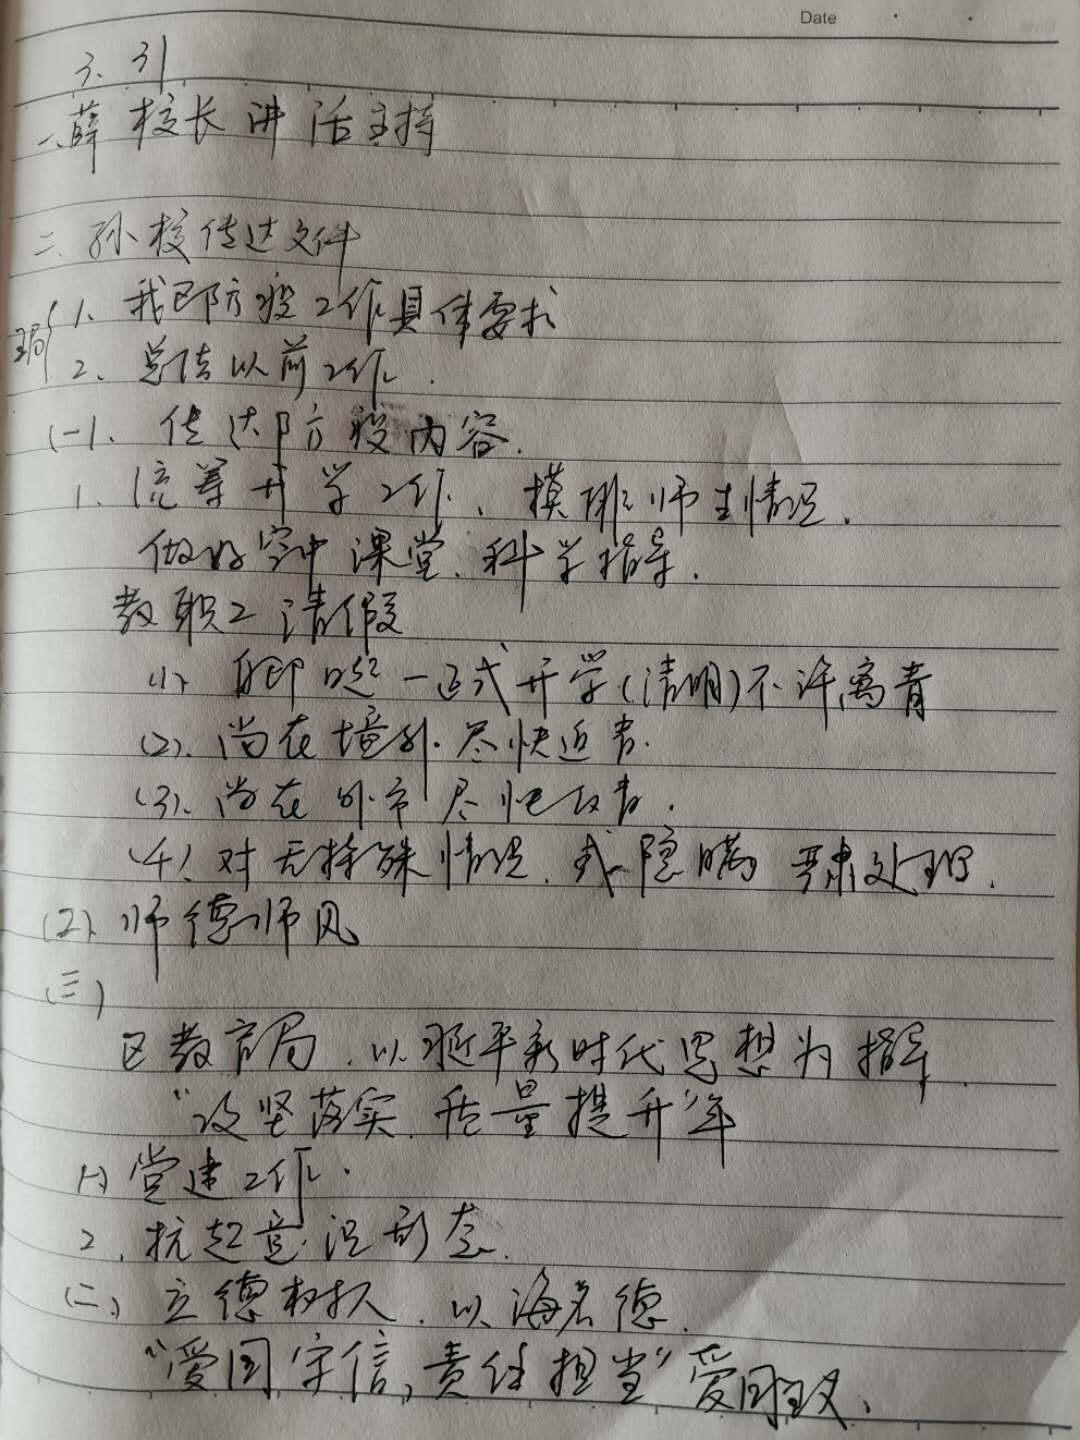 Date
3.31
一、薛校长讲话主持
二、孙校传达文件
1、我区防疫工作具体要求
2、总结以前工作.
(一)、传达防疫内容.
1、统筹开学工作、摸排师生情况.
做好空中课堂、科学指导.
教职工请假
(1) 即日起—正式开学(清明)不许离青
(2)、尚在境外.尽快返青.
(3)、尚在外市尽快返青.
(4)、对无特殊情况、或隐瞒 严肃处理.
(2)、师德师风
(三)
区教育局、以习近平新时代思想为指导
"攻坚落实、质量提升"年
1、党建工作.
2、抗起意识形态.
(二)、立德树人、以海名德.
"爱国守信,责任担当"爱国